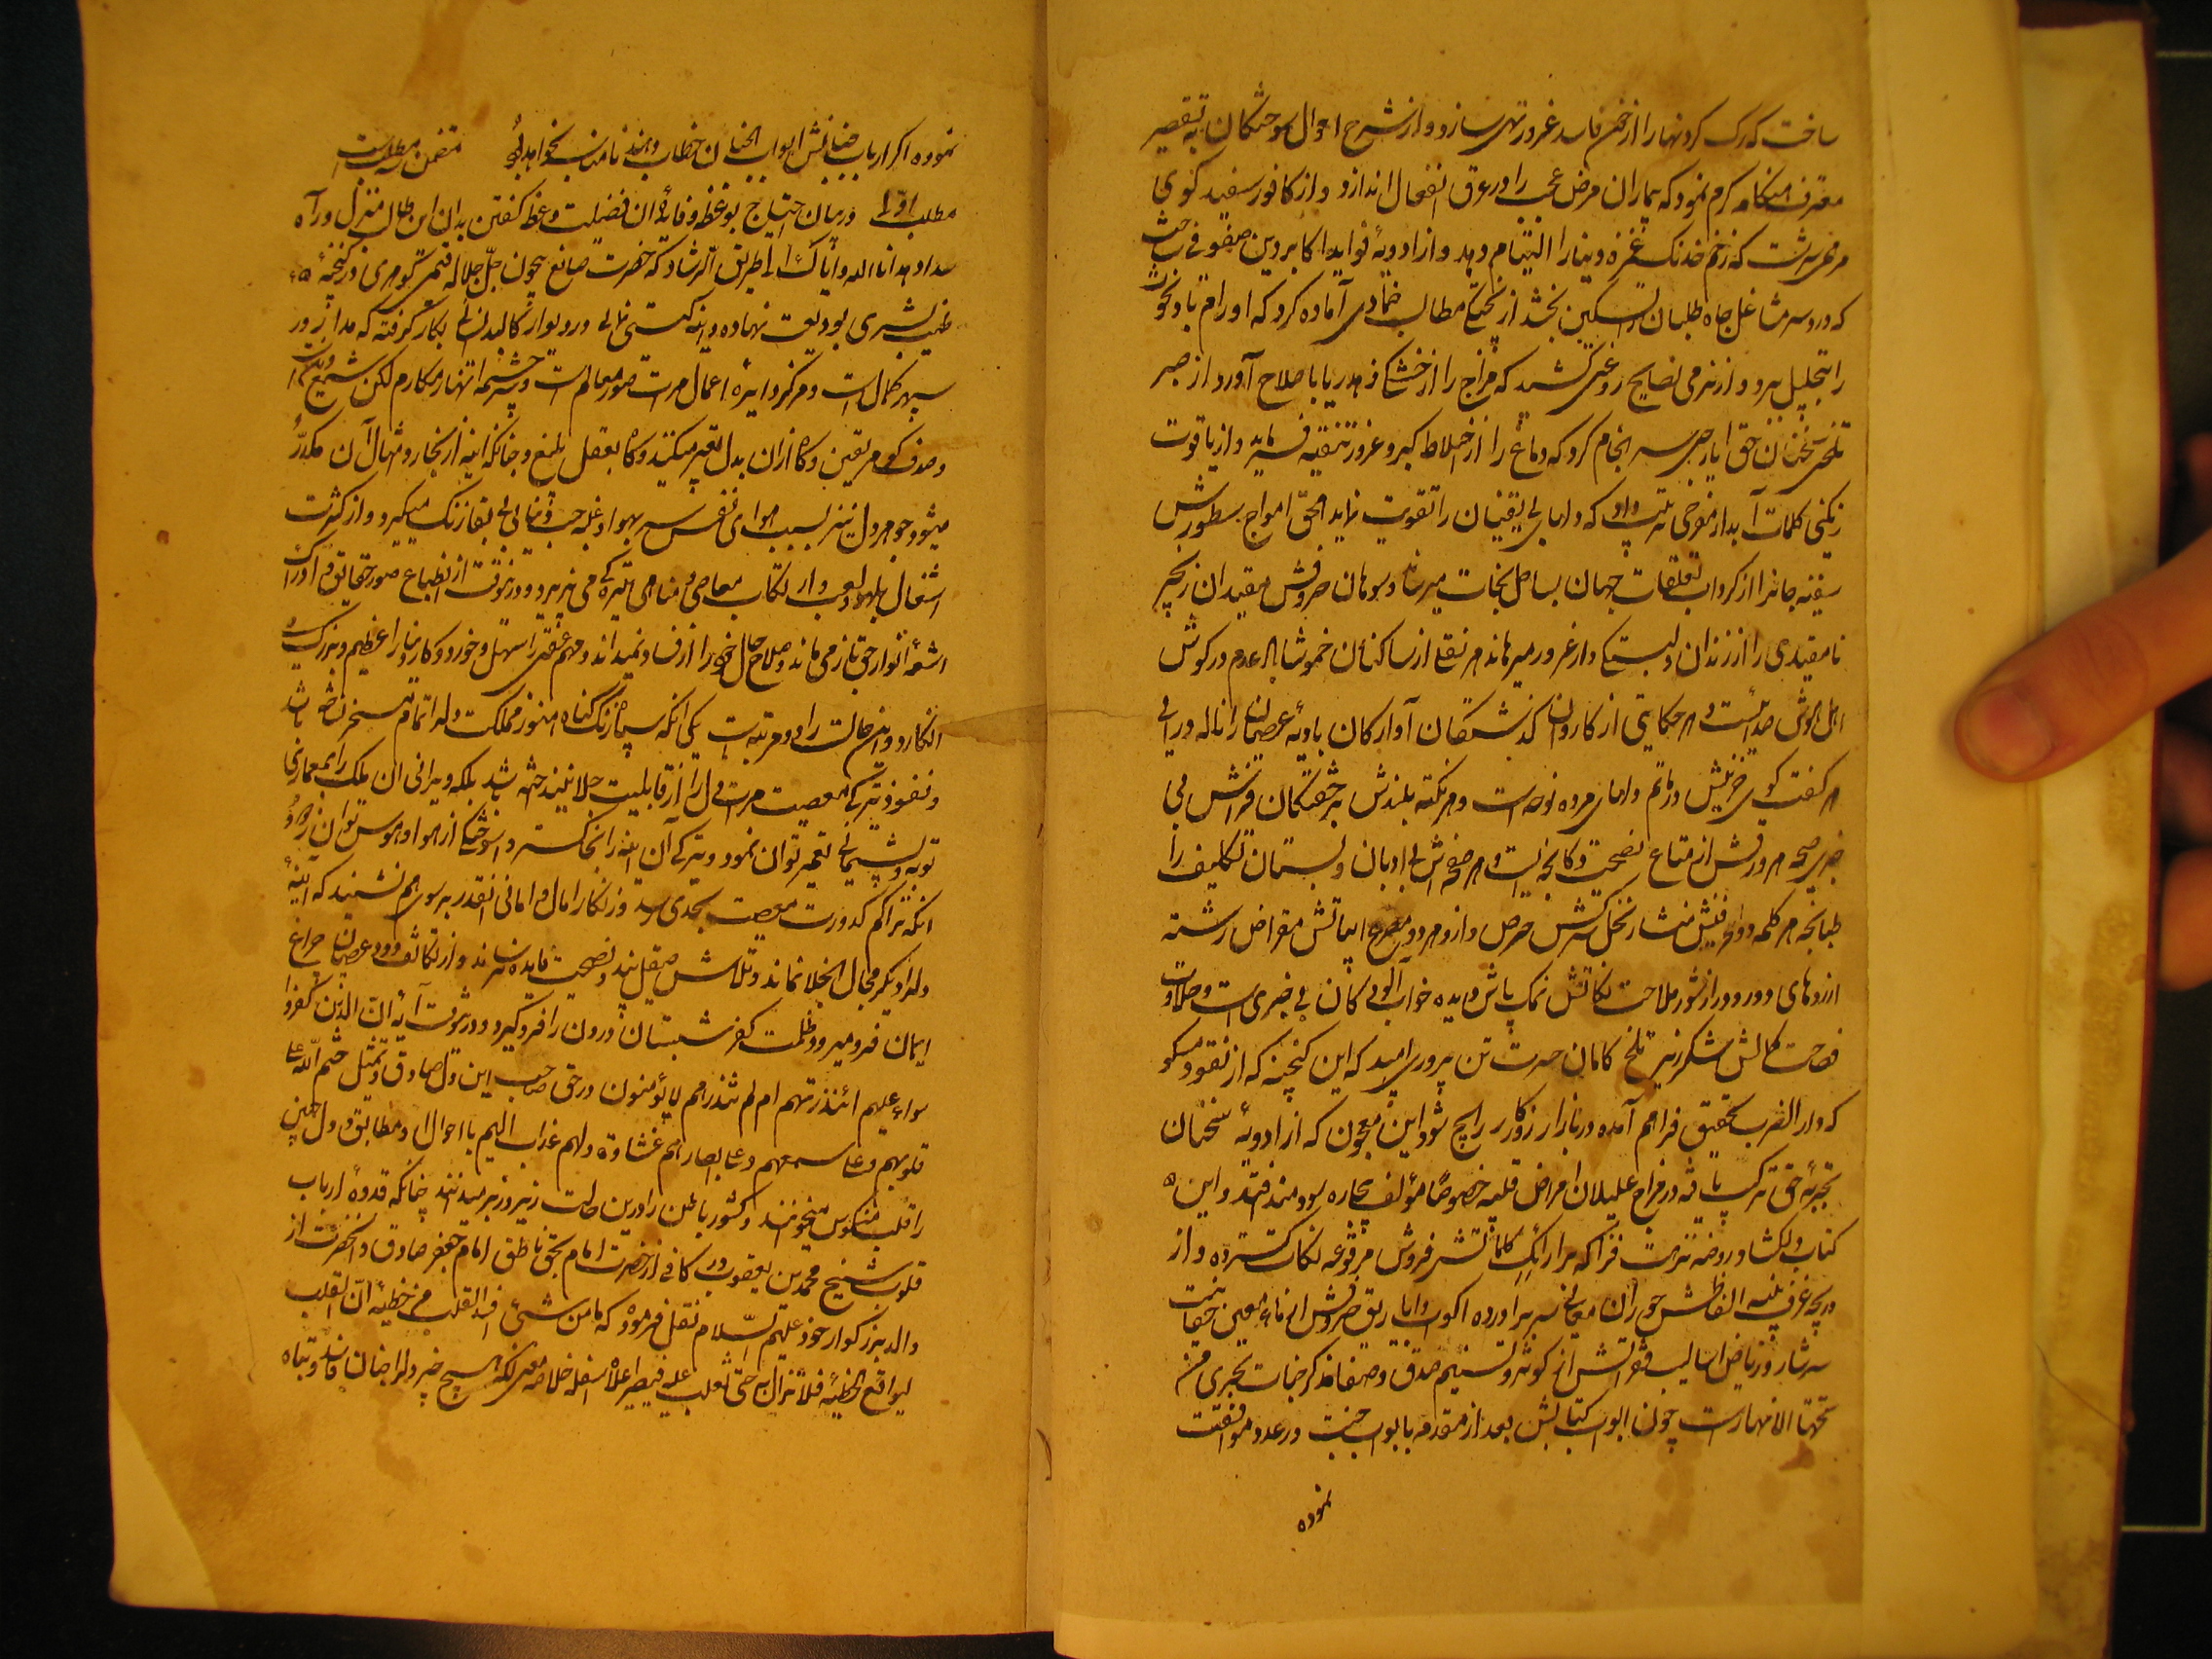 ساخت که رک کردنها را از خون فاسد غرور تهی سازد و از شرح احوال سوختگان به تقصیر
معترف کرم نمود که بیماران مرض عجب را در عرق انفعال اندازد و از کافور سفید کوی
مرهمی سرشت که زخم خدنک غمزه دنیا را التیام دهد و از ادویهٔ فواید اکابر دین
که درد سر مشاغل جاه طلبان را تسکین بخشد از مطالب ضمادی آماده کرد که اورام باد نخوت
را بتحلیل برد و از نرمی نصایح روغنی کشید که مزاج را از خشکی زهد ریا باصلاح آورد از صبر
تلخی سخنان حق ایارجی سرانجام کرد که دماغ را از اخلاط کبر و غرور تنقیه فرماید و از یاقوت
رنکینی کلمات آبدار مفرحی ترتیب داد که دلهای بی یقینان را تقویت نماید الحق امواج سطورش
سفینه جانرا از کرداب تعلقات جهان بساحل نجات میرساند و سوهان حروفش مقیدان زنجیر
نامقیدی را از زندان دلبستکی دار غرور میرهاند هر نقلی از ساکنان خموشاباد عدم در کوش
اهل هوش صدائیست و هر حکایتی از کاروان کذشتکان آوارکان بادیه عصیان را ناله درائی
هر کفت کوی حزینش در ماتم دلهای مرده نوحه است و هر نکته بلندش بر خفتکان فراش بی
خبری صیحه هر ورقش از متاع نصیحت دکانچه ایست و هر صفحه اش بی ادبان دبستان تکلیف را
طپانچه هر کلمه دو حرفیش منشار نخل سرکش حرص و از و هر دو مصرع ابیاتش مقراض رشته
ارزوهای دور و دراز شور ملاحت نکاتش نمک پاش دیده خواب آلودکان بی خبری است و حلاوت
فصاحت کلامش شکر ریز تلخ کامان حسرت تن پروری امید که این کنجینه که از نقود مسکوک
که دار الضرب تحقیق فراهم آمده در بازار روزکار رایج شود و این معجون که از ادویهٔ سخنان
تجربهٔ حق ترکیب یافته در مزاج علیلان امراض قلبیه خصوصا مؤلف بیچاره سودمند افتد و این
کتاب دلکشا و روضه نزهت فزا که بر ارائک کلماتش فروش مرفوعه نکات کسترده و از
دریچه غرف مبنیه الفاظش حوران معانی سر برآورده اکواب و اباریق حروفش از ماء معین حقانیت
سرشار و ریاض اسالیب فقراتش از کوثر و تسنیم صدق و صفا تذکر جنات تجری من
تحتها الانهارست چون ابواب کتابش بعد از مقدمه با ابواب جنت در عدد موافقت
نموده
نموده اکر ارباب ضیانتش ابواب الجنان خطاب دهند نامناسب نخواهد بود متضمن سه مطلب است
مطلب اول در بیان احتیاج بوعظ و فائدهٔ آن فضیلت وعظ کفتن بدان این طالب منزل و راه
سداد هدانا الله و ایاک الی طریق الرشاد که حضرت صانع بیچون جل جلاله قیمتی کوهری در کنجینهٔ
طینت بشری بودیعت نهاده و آینه کیتی نمائی در دیوار کالبد بکار کرفته که مدار
سپهر کمال است و مرکز دایره اعمال مرآت صور معالم است و سرچشمه انهار مکارم لکن
و صدف کوهر یقین و کاه ازان بدل تعبیر میکنند و کاه بعقل بلیغ و چنانکه آینه از بخار و امثال آن مکدر
میشود جوهر دل نیز بسبب هوای نفس سر بهوا و غلبه حب دنیای بی بقا زنک میکیرد و از کثرت
اشتغال بلهو و لعب و ارتکاب معاصی و مناهی تیرکی می پذیرد و درینوقت از انطباع صور حقایق و ادراک
اشعهٔ انوار حق باز می ماند و صلاح حال خود را از فساد نمیداند و مهم عقبی را سهل و خورد و کار دنیا را عظیم و بزرک می
انکارد و این حالت را دو مرتبه است یکی انکه سپاه زنک کناه هنوز مملکت دلرا تمام مسخر نساخته باشد
و نفوذ تیرکی معصیت مرآت دل را از قابلیت جلا نینداخته باشد بلکه ویرانی آن ملک را بمعماری
توبه و پشیمانی تعمیر توان نمود و تیرکی آن آینه را بخاکستر واسوختکی از هوا و هوس توان زدود
انکه تراکم کدورت معصیت بحدی رسد و زنکار آمال و امانی انقدر بر سر هم نشیند که آینهٔ
دلرا دیکر مجال انجلا نماند و تلاش صیقل پند و نصیحت فایده نرساند و از تکاثف دود عصیان چراغ
ایمان فرو میرد و ظلمت کفر شبستان درون را فرو کیرد و درینوقت آیهٔ ان الذین کفروا
سواء علیهم ءانذرتهم ام لم تنذرهم لا یؤمنون در حق صاحب این دل صادق و تمثیل ختم الله علی
قلوبهم و علی سمعهم و علی ابصارهم غشاوة و لهم عذاب الیم با احوال او مطابق و دل چنین
را قلب منکوس میخوانند و کشور باطن را درین حالت زیر و زبر میدانند چنانکه قدوهٔ ارباب
قلوب شیخ محمد بن یعقوب در کافی از حضرت امام بحق ناطق امام جعفر صادق و آنحضرت از
والد بزرکوار خود علیهم السلام نقل فرموده که ما من شئ افسد القلب من خطیئه ان القلب
لیواقع الخطیئه فلا تزال به حتی تغلب علیه فیصیر اعلاه اسفله خلاصه معنی انکه هیچ چیز دلرا چنان فاسد و تباه